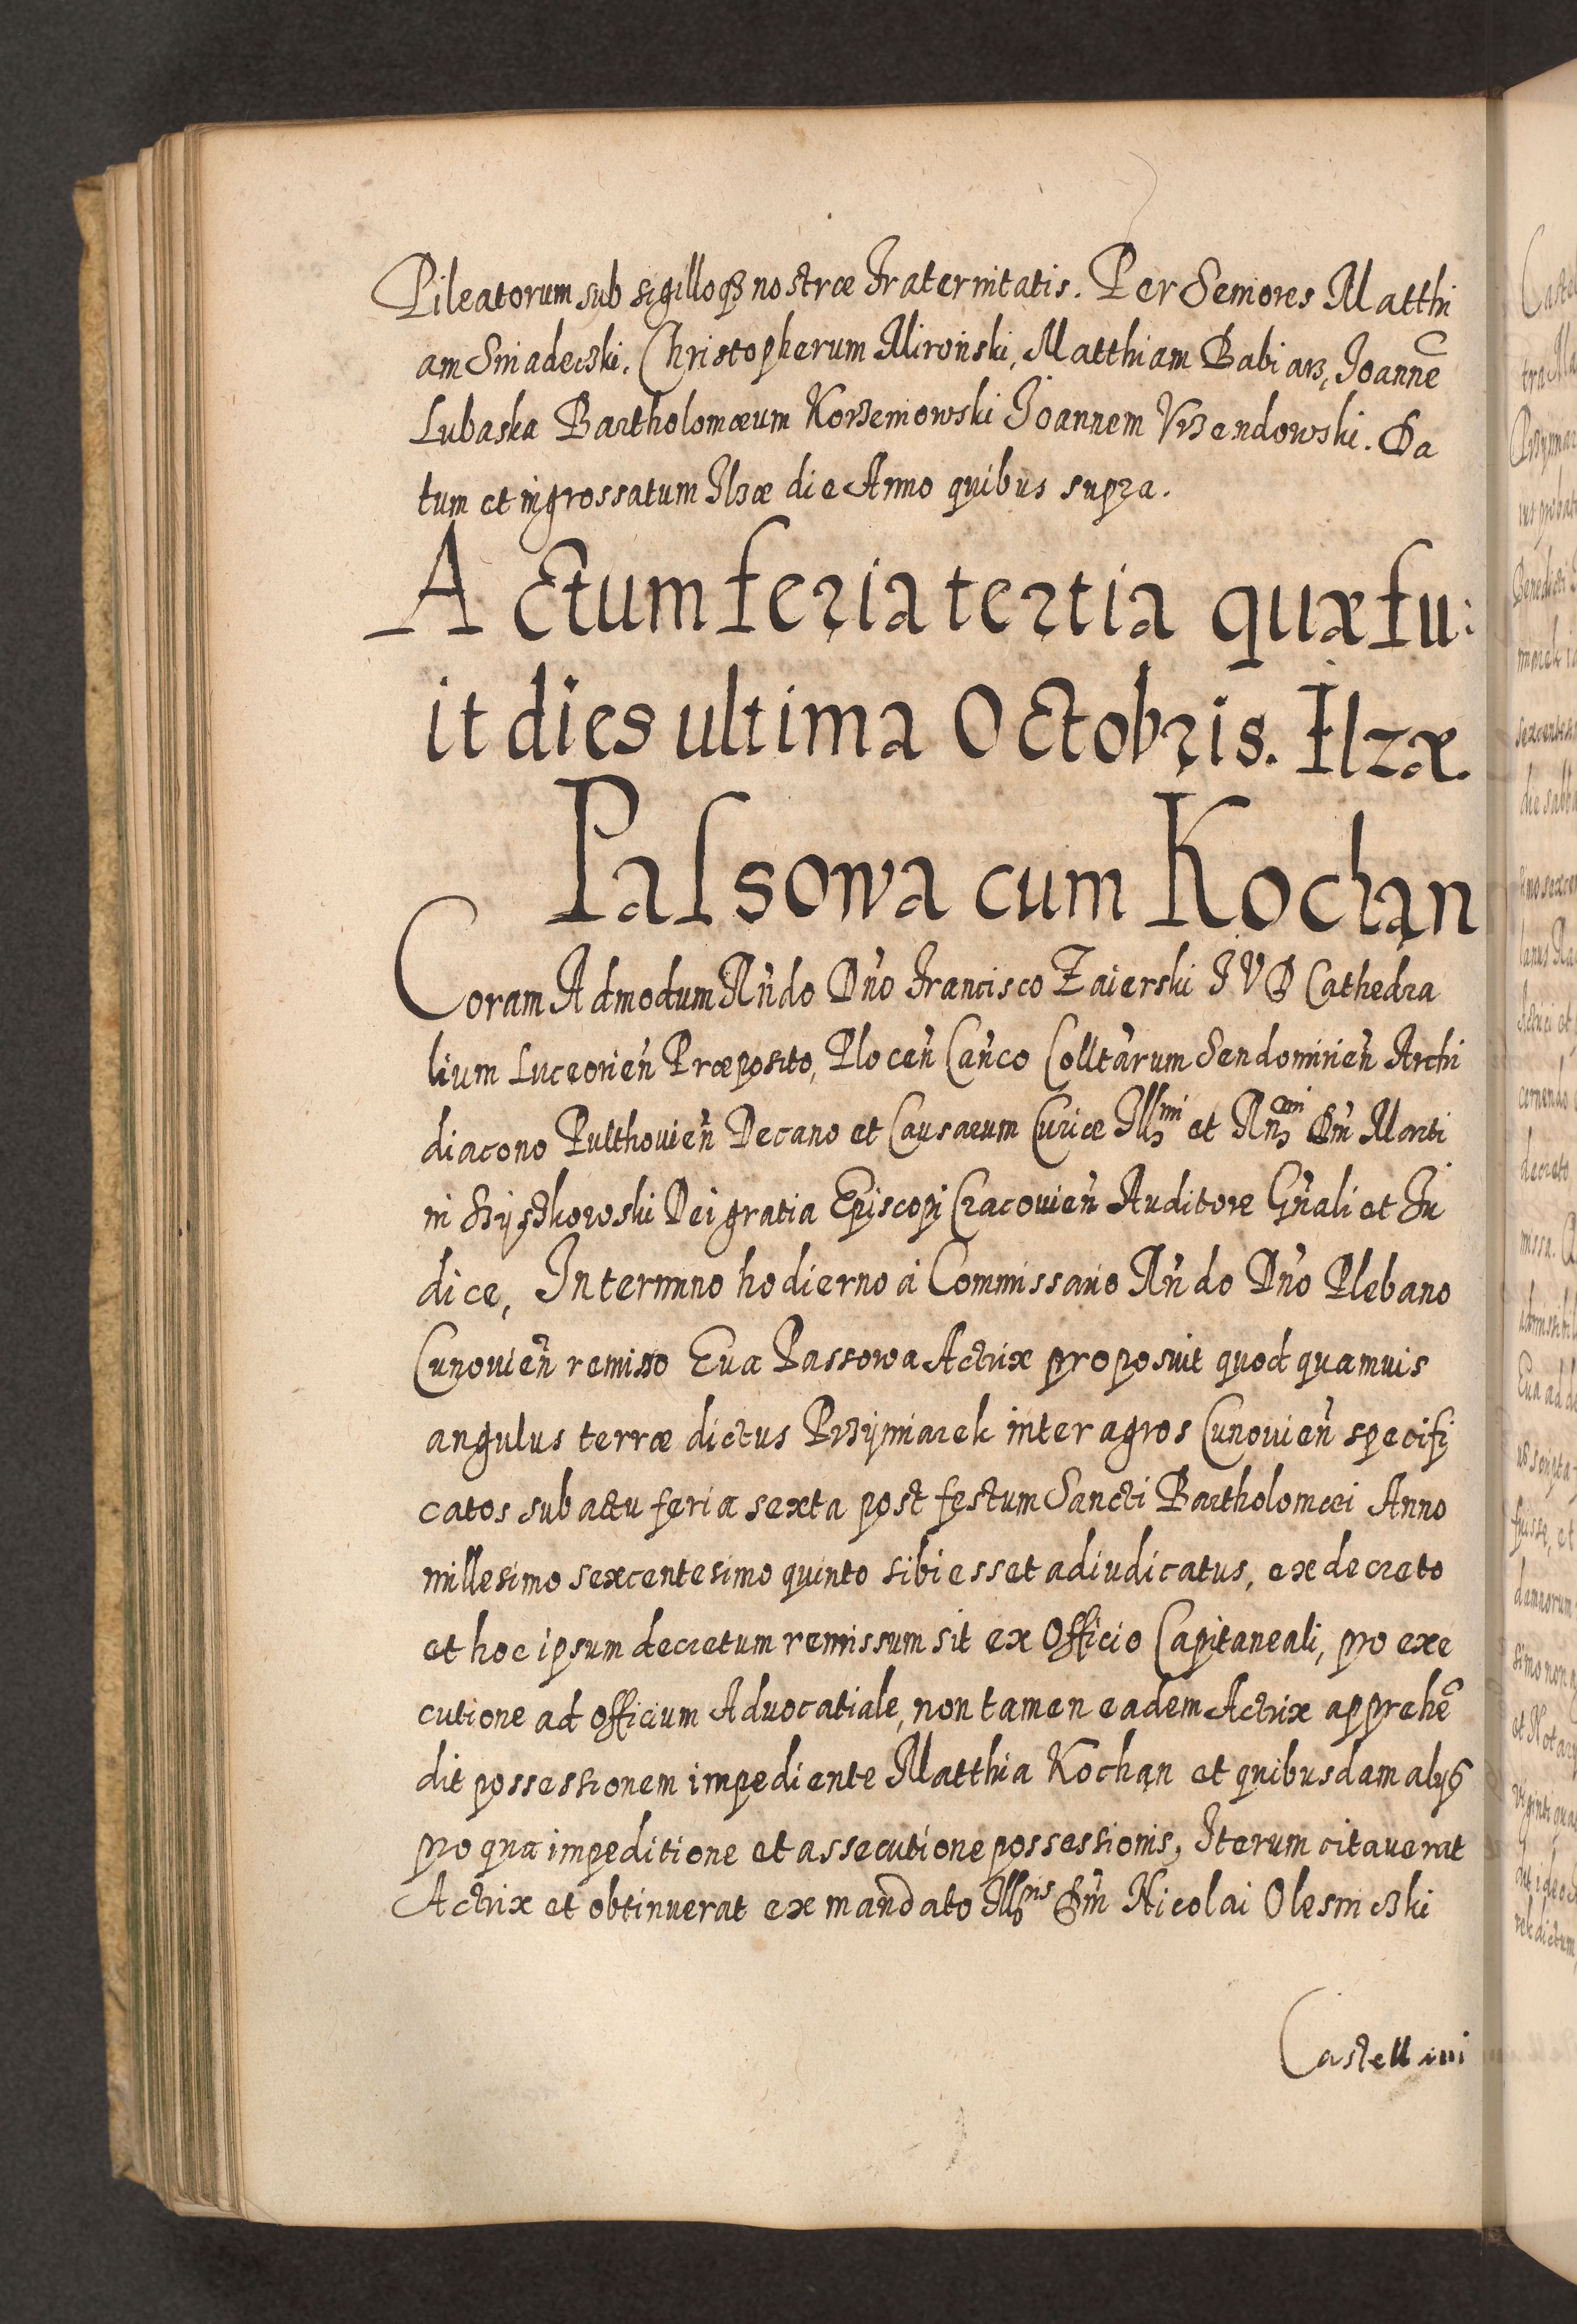 Pileatorum sub sigilloqꝫ nostræ Fraternitatis. Per Seniores Matthi
am Sniadecski, Christopherum Miroński, Matthiam Babiarz, Joannē
Lubaska Bartholomæum Korzeniowski Joannem Vrzendowski. Da
tum et ingrossatum Ilzæ die Anno quibus supra.
Actum feria tertia quæ fu:
it dies ultima Octobris. Ilzæ.
Passowa cum Kochąn
Coram Admodum Rńdo Dńo Francisco Zaierski J V D Cathedra
lium Luceorień Præposito, Ploceń Cańco Colltárum Sendomirień Archi
diacono Pulthovień Decano et Causarum Curiæ Illmi et Rńmi Dńi Marti
ni Szyszkowski Dei gratia Episcopi Cracovień Auditore Gńali et Ju
dice, In termino hodierno á Commissario Rńdo Dńo Plebano
Cunovień remisso Eva Passowa Actrix proposuit quod quamvis
angulus terræ dictus Przymiarek inter agros Cunovień specifi
catos sub actu feria sexta post festum Sancti Bartholomæi Anno
millesimo sexcentesimo quinto sibi esset adiudicatus, ex decreto
et hoc ipsum decretum remissum sit ex Officio Capitaneali, pro exe
cutione ad officium Advocatiale, non tamen eadem Actrix apprehē
dit possessionem impediente Matthia Kochąn et quibusdam alijs
pro qua impeditione et assecutione possessionis, Iterum citaverat
Actrix et obtinuerat ex mandato Illris Dńi Nicolai Olesniczki
Castellani